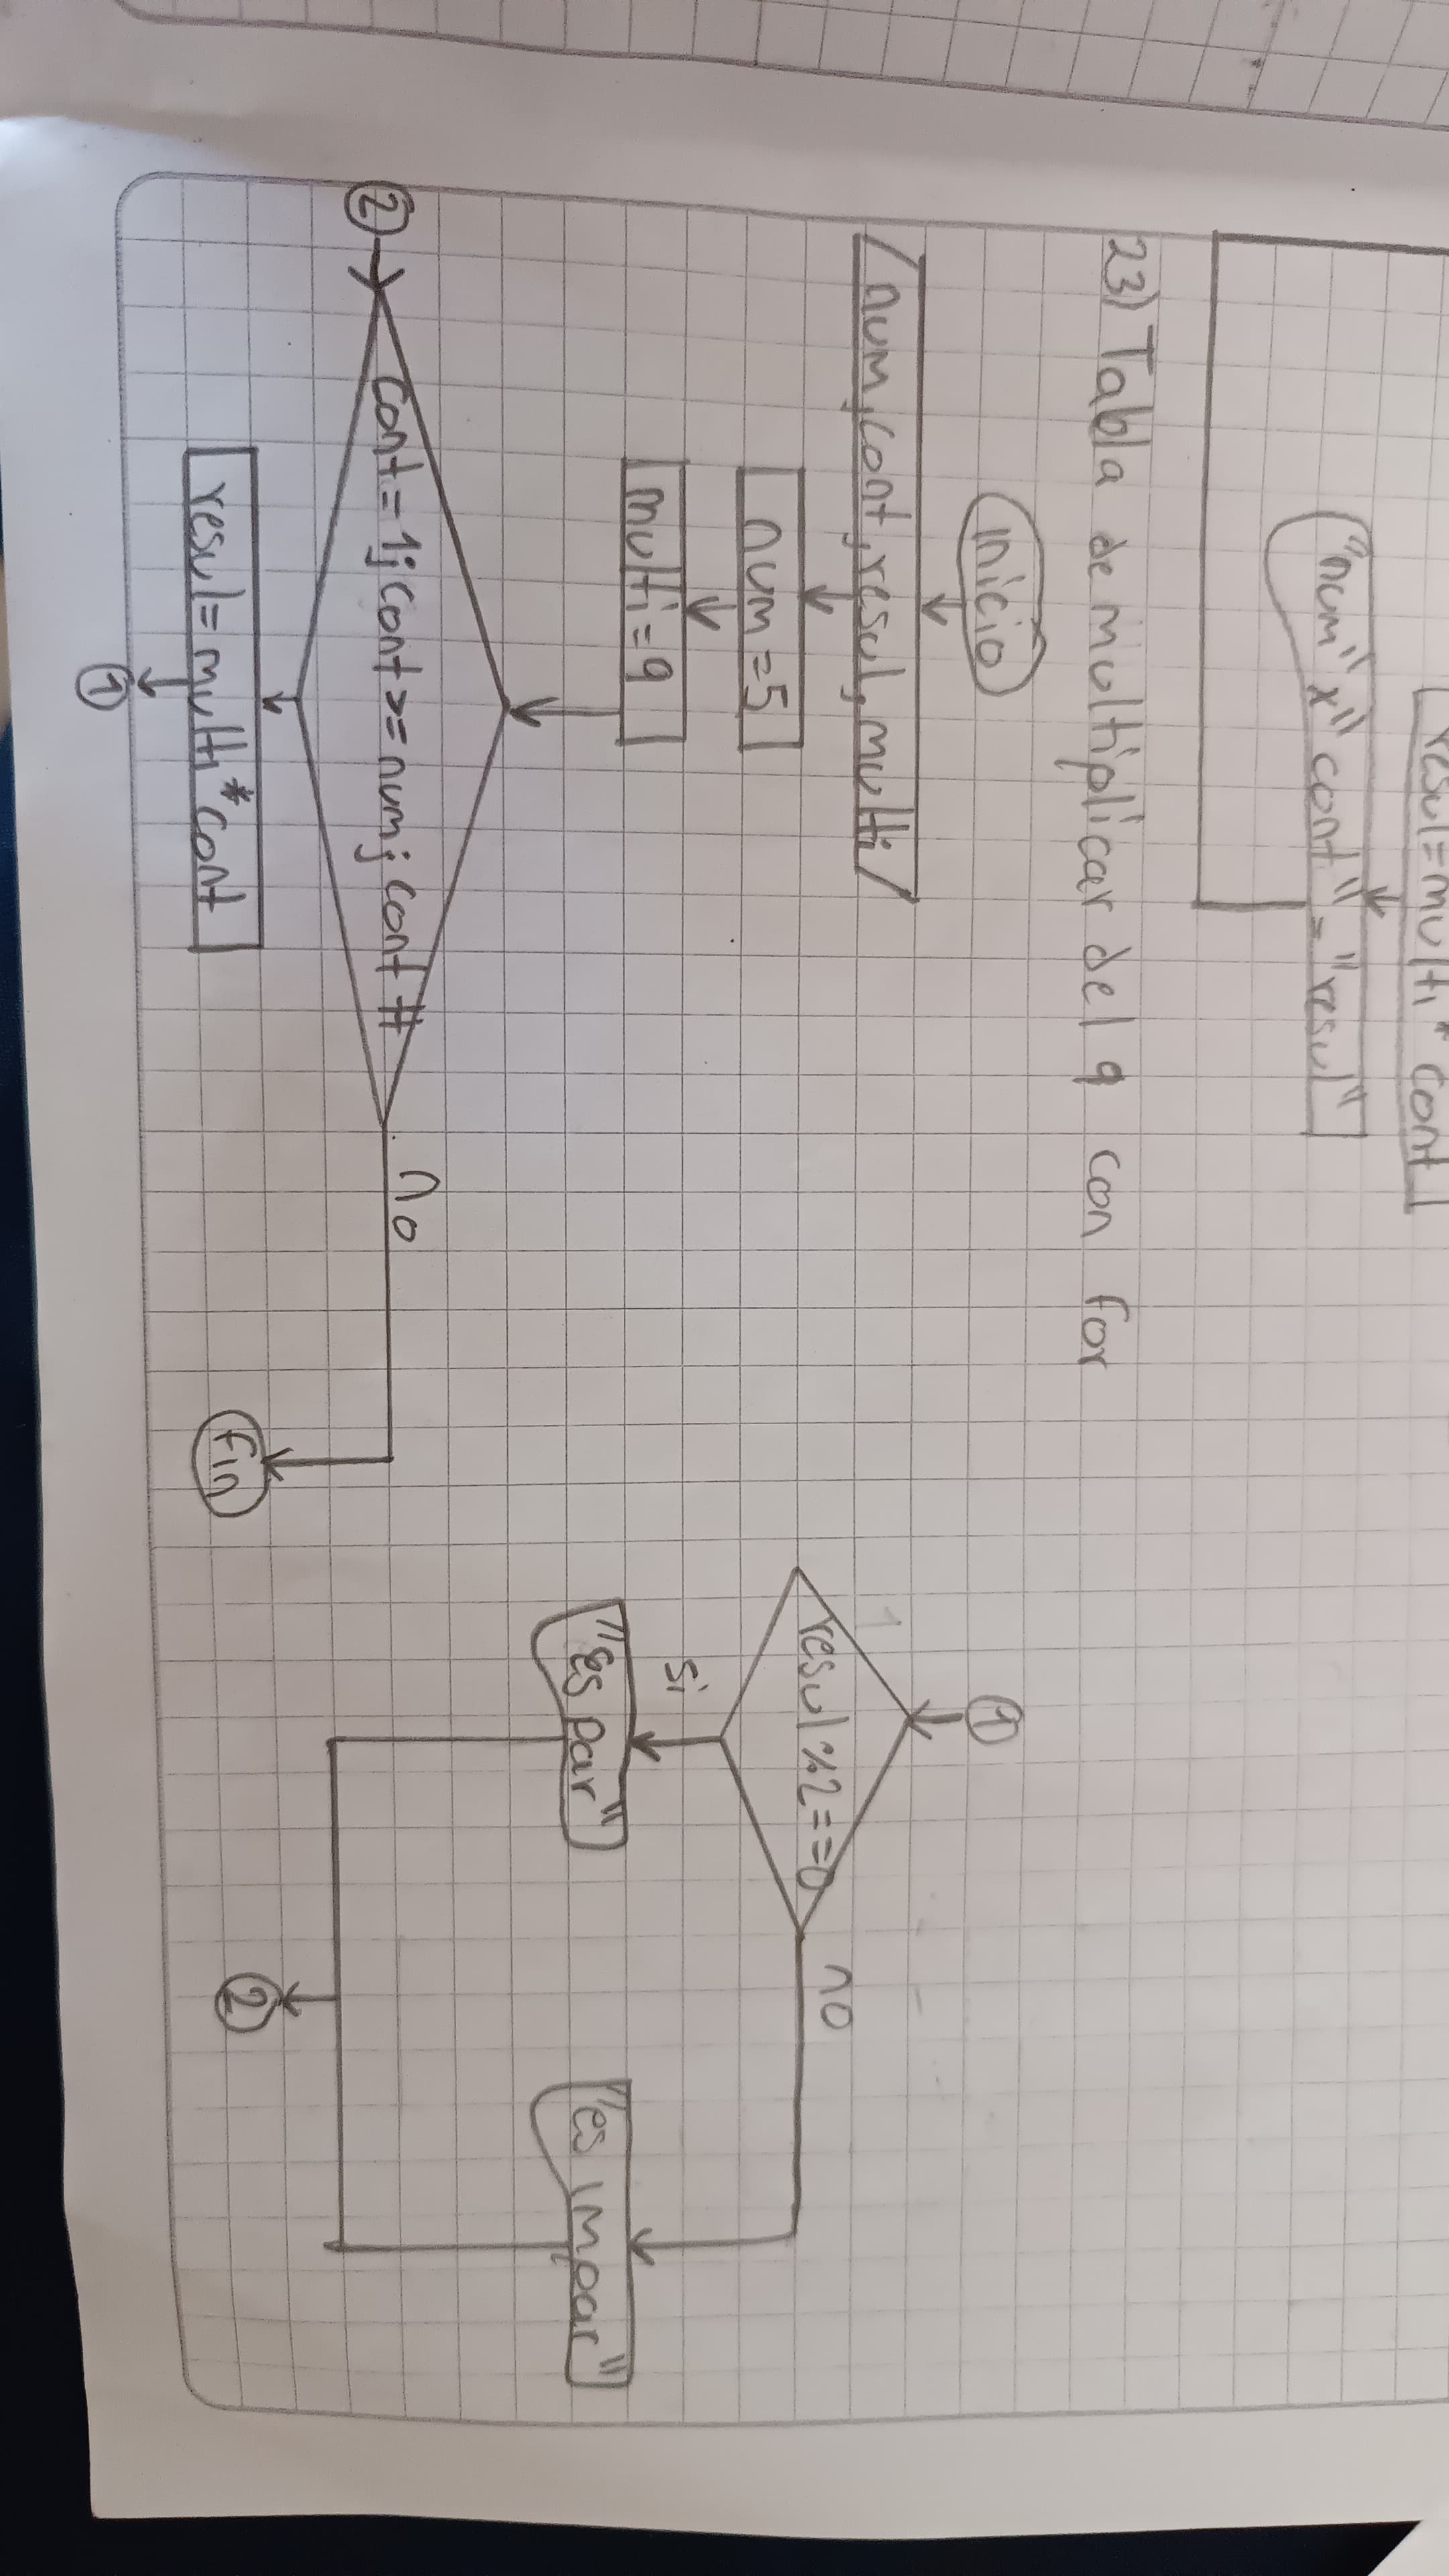 resul=multi*cont
"num" x" cont" = "resul"
23) Tabla de multiplicar del 9 con for
inicio
num, cont, resul, multi
num=5
multi=9
2
cont=1; cont>=num; cont ++
no
resul=multi*cont
1
fin
1
resul%2==0
no
si
"es par"
"es impar"
2